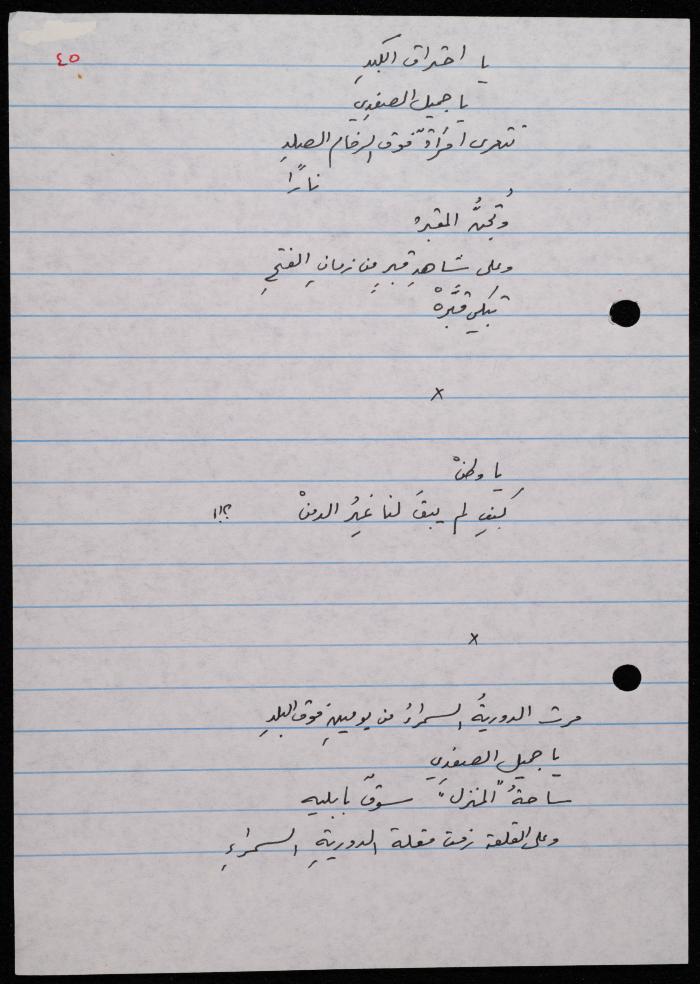 ٤٥
يا احتراق الكبدِ
يا جميل الصفدِي
تتعرى امرأةٌ فوق الرخام الصلدِ
نارًا
وتُجَنُّ المقبرهْ
وعلى شاهدِ قبرٍ من زمانِ الفتحِ
تبكي قُبَّرهْ
×
يا وطنْ
كيفَ لم يبقَ لنا غيرُ الدمنْ ؟!!
×
مرت الدوريةُ السمراءُ من يومينِ فوق البلدِ
يا جميل الصفدِي
ساحةُ "المنزل" سوقٌ بابليه
وعلى القلعة زمت مقلة الدوريةِ السمراءِ